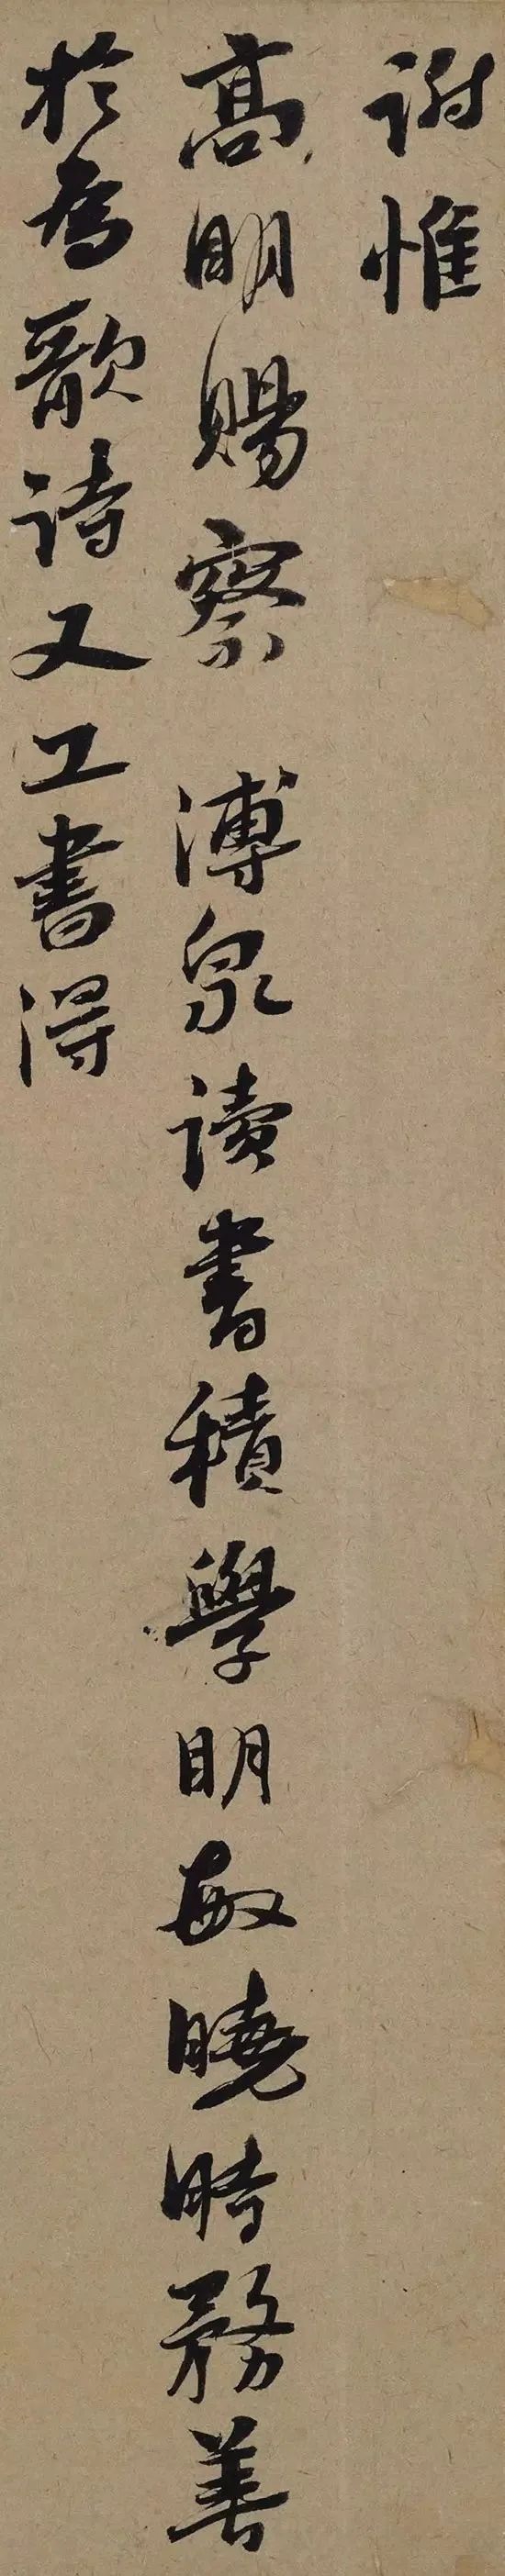 谢惟
高明賜察 溥泉讀書積學明敏曉時務善
於為歌詩又工書得